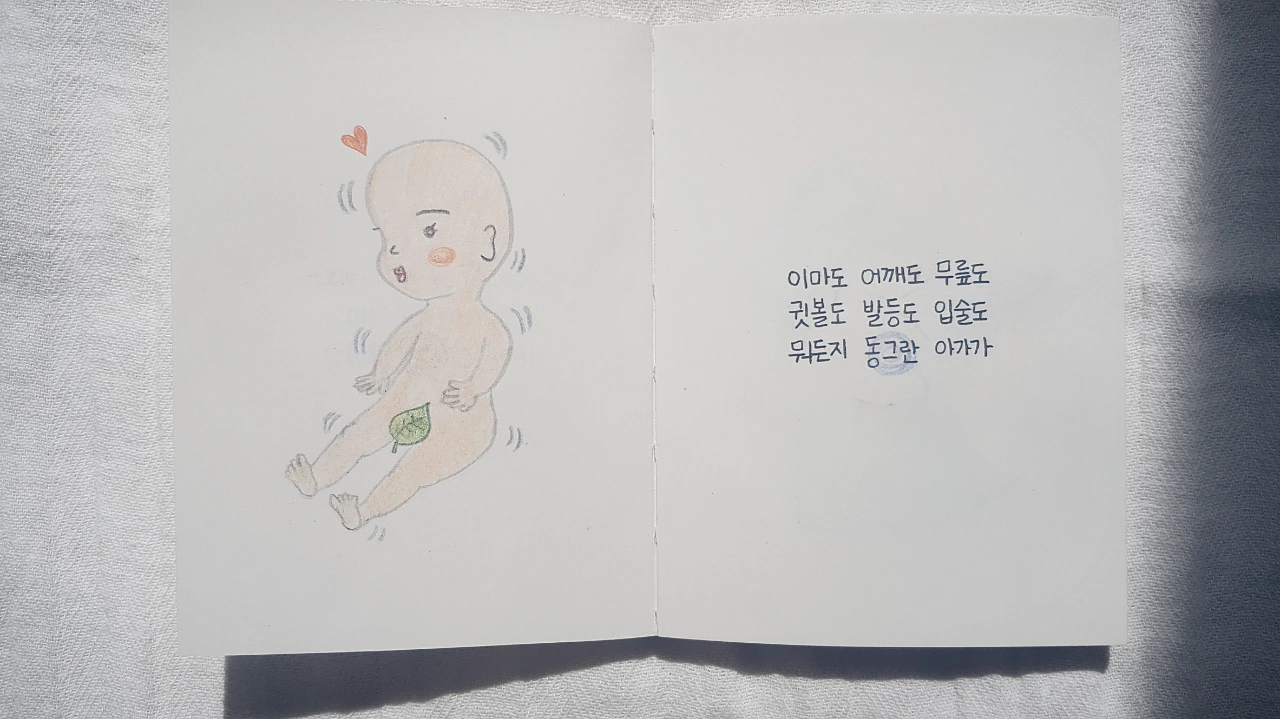 이마도 어깨도 무릎도
귓볼도 발등도 입술도
뭐든지 동그란 아가가